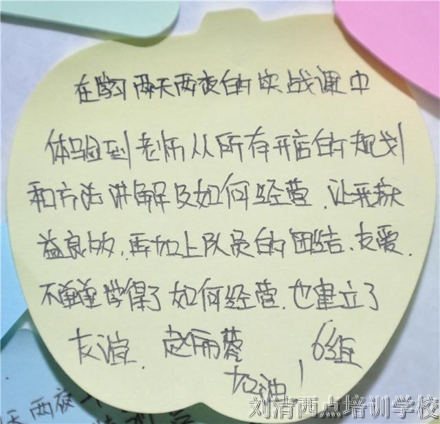 在学习两天两夜的实战课中
体验到老师从所有开店的规划
和方法讲解及如何经营,让我获
益良多,再加上队员的团结、友爱.
不单单学得了如何经营.也建立了
友谊. 赵丽蓉 6组
加油!
刘清西点培训学校
天两夜